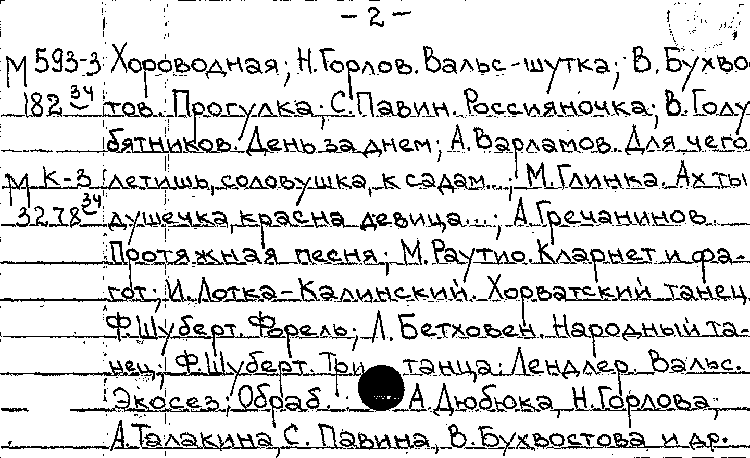 - 2 -
М 593-3 Хороводная; Н.Горлов. Вальс-шутка; В. Бухво
182 34 тов. Прогулка; С.Павин. Россияночка; В.Голу
бятников. День за днем; А.Варламов. Для чего
М К-3 летишь, соловушка, к садам...; М.Глинка. Ах ты
3278 34 душечка, красна девица...; А.Гречанинов.
Протяжная песня; М.Раутио. Кларнет и фа-
гот; И.Лотка-Калинский. Хорватский танец
Ф.Шуберт. Форель; Л. Бетховен. Народный та-
нец; Ф.Шуберт. Три танца: Лендлер. Вальс.
Экосез; Обраб. А.Дюбюка, Н.Горлова;
А.Талакина, С. Павина, В.Бухвостова и др.